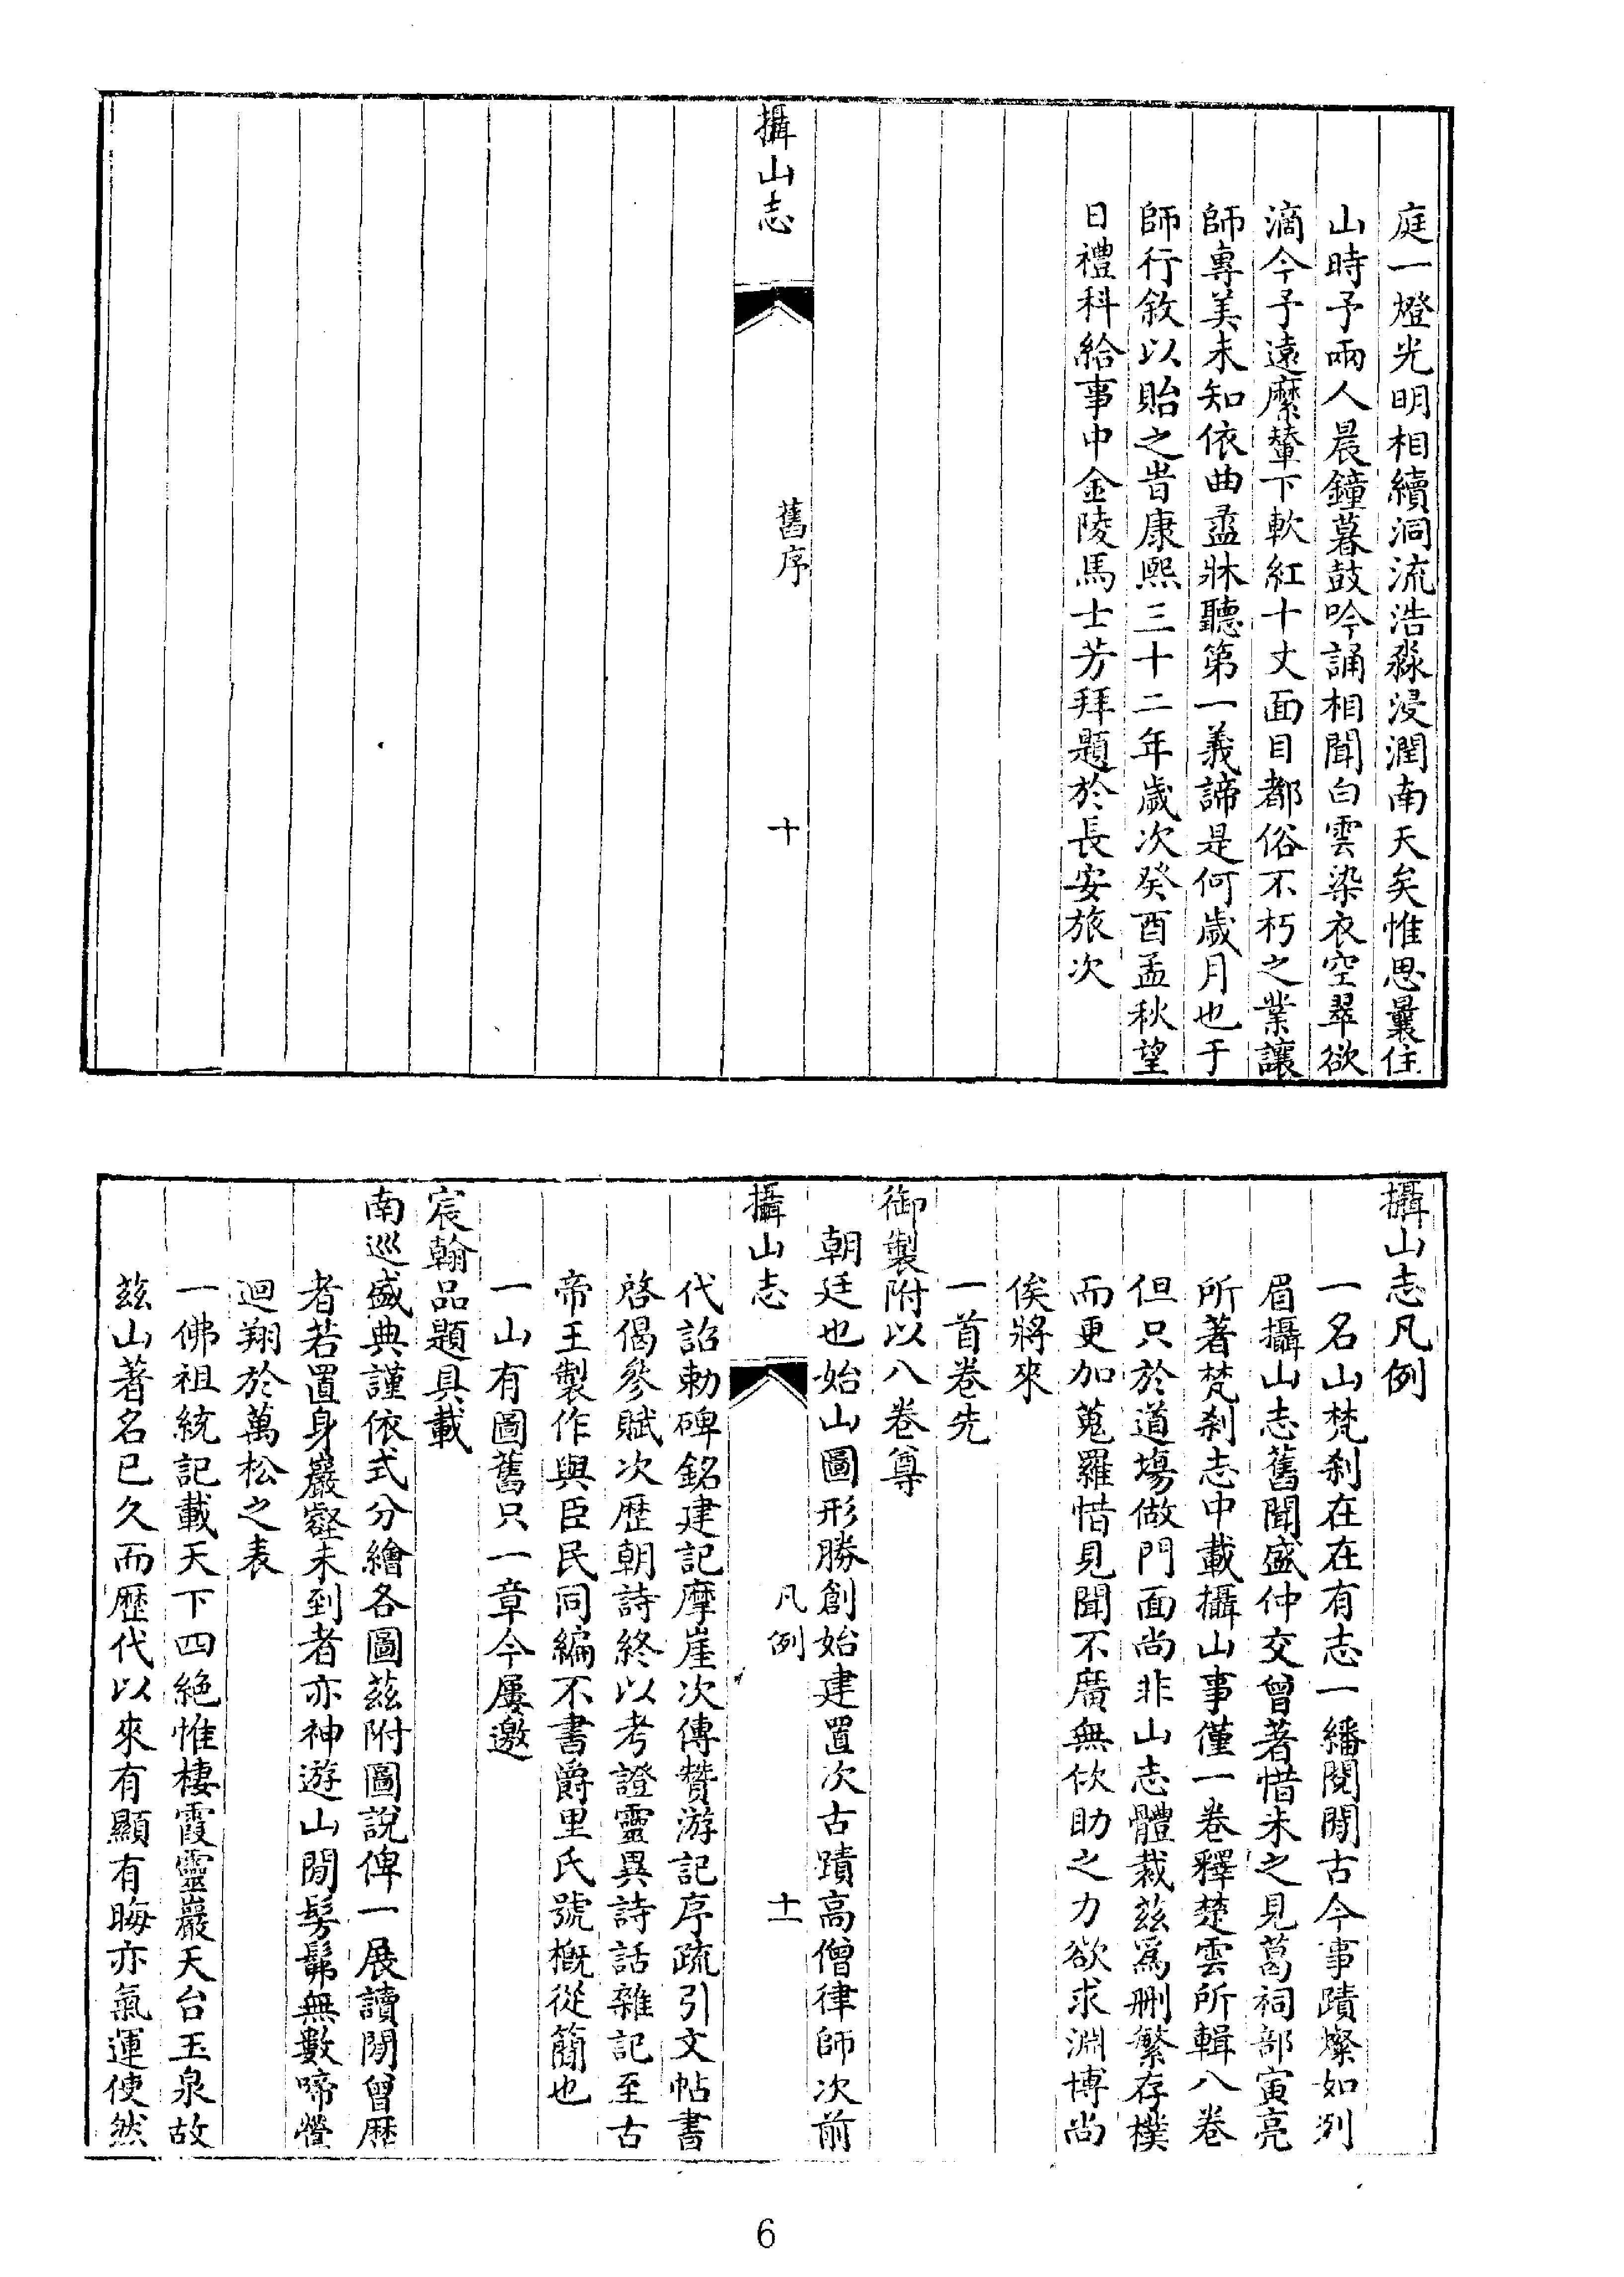 庭一燈光明相續洞流浩淼浸潤南天矣惟思曩住
山時予兩人晨鐘暮鼓吟誦相聞白雲染衣空翠欲
滴今予遠縻輦下軟紅十丈面目都俗不朽之業讓
師專美未知依曲盝牀聽第一義諦是何歲月也于
師行敘以貽之旹康熙三十二年歲次癸酉孟秋望
日禮科給事中金陵馬士芳拜題於長安旅次
攝山志
舊序
十
攝山志凡例
一名山梵刹在在有志一繙閱閒古今事蹟燦如列
眉攝山志舊聞盛仲交曾著惜未之見葛祠部寅亮
所著梵刹志中載攝山事僅一卷釋楚雲所輯八卷
但只於道塲做門面尚非山志體裁茲爲刪繁存樸
而更加蒐羅惜見聞不廣無佽助之力欲求淵博尚
俟將來
一首卷先
御製附以八卷尊
朝廷也始山圖形勝創始建置次古蹟高僧律師次前
攝山志
凡例
十一
代詔勅碑銘建記摩崖次傳贊游記序疏引文帖書
啓偈參賦次歷朝詩終以考證靈異詩話雜記至古
帝王製作與臣民同編不書爵里氏號概從簡也
一山有圖舊只一章今屢邀
宸翰品題具載
南巡盛典謹依式分繪各圖茲附圖說俾一展讀閒曾歷
者若置身巖壑未到者亦神遊山閒髣髴無數啼鶯
迴翔於萬松之表
一佛祖統記載天下四絕惟棲霞靈巖天台玉泉故
茲山著名已久而歷代以來有顯有晦亦氣運使然
6